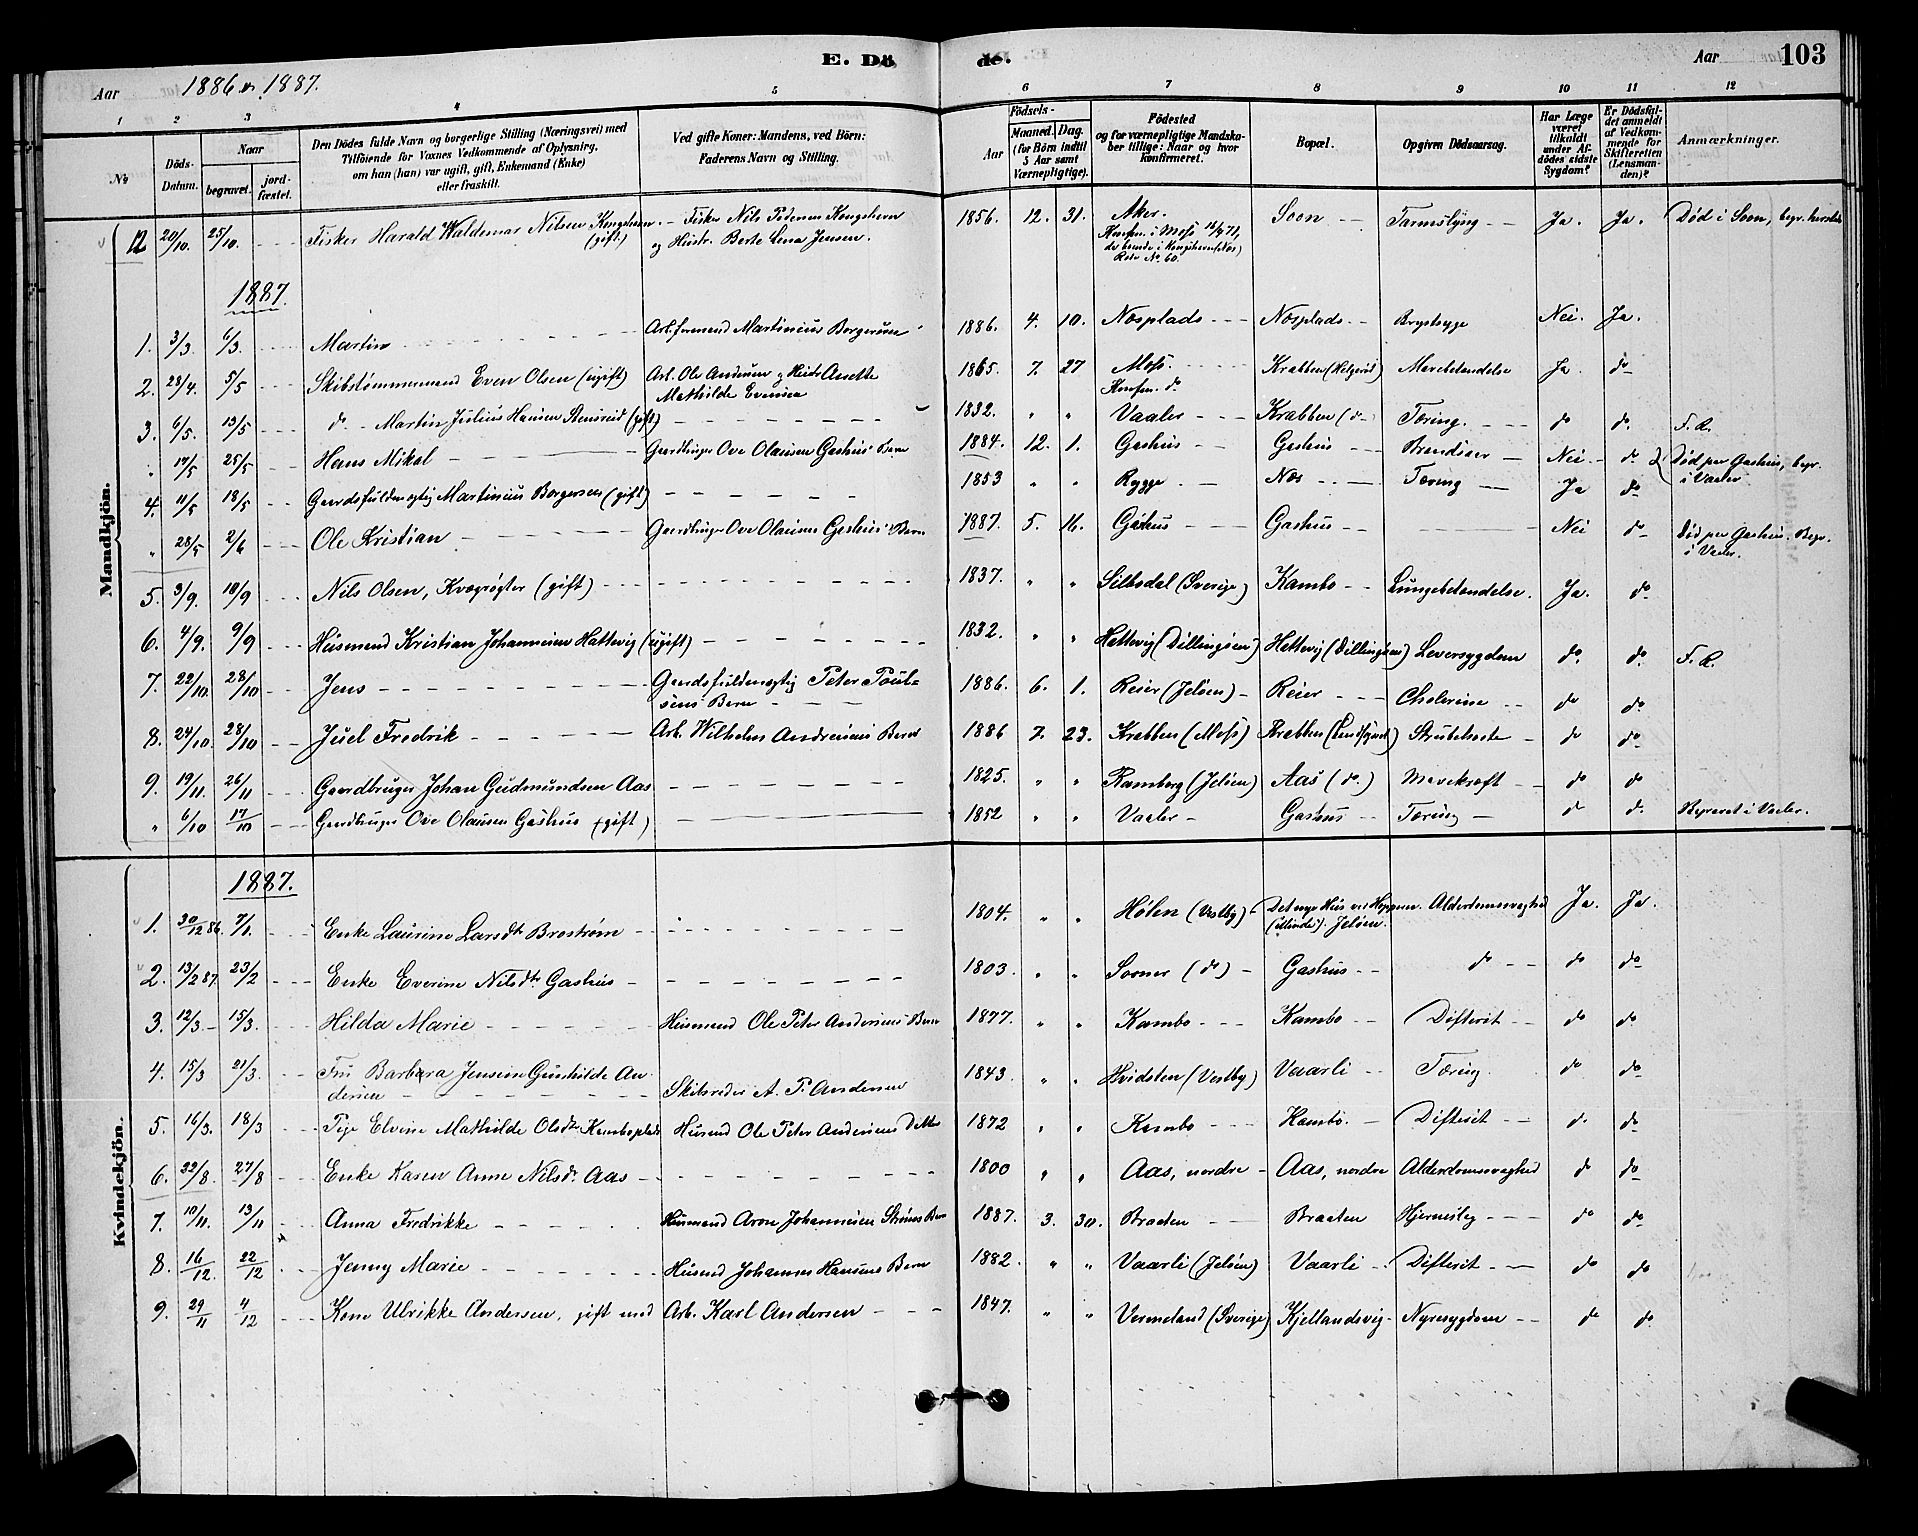 E. Dö de.
Aar 1886 1887.
Aar 103
1 2 3 4 5 6 7 8 9 10 11 12
No
Döds-Datum.
Naar
begravet.
jord-fæstet.
Den Dödes fulde Navn og borgerlige Stilling (Næringsvei) med
Tilföiende for Voxnes Vedkommende af Oplysning,
om han (hun) var ugift, gift, Enkemand (Enke)
eller fraskilt.
Ved gifte Koner: Mandens, ved Börn:
Faderens Navn og Stilling.
Födsels-
Aar
Maaned. Dag.
(for Börn indtil
5 Aar samt
Værnepligtige).
Födested
og for værnepligtige Mandska-
ber tillige: Naar og hvor
konfirmeret.
Bopæl.
Opgiven Dödsaarsag.
Har Læge
været
tilkaldt
under Af-
dödes sidste
Sygdom?
Er Dödsfal-
det anmeldt
af Vedkom-
mende for
Skifteretten
(Lensman-
den)?
Anmærkninger.
Mandkjön.
12 20/10. 25/10. Fisker Harald Waldemar Nilsen Kongshavn (gift) Fisker Nils Pedersen Kongshavn og Hustr. Berte Lena Jensen. 1856. 12. 31. Aker. Konfm. i Moss Soon Ja. Ja. Død i Soon, begr.
1887.
1. 3/3. 6/3. Martin Martinius Borgersen 1886. 4. 10. Næsplads Næsplads Brystsyge Nei. Ja.
2. 28/4. 5/5 Skibstømmermand Even Olsen (ugift) Arb. Ole Andersen og Hustr. Anette Mathilde Evensen 1865. 7. 27 Moss. Konfm. do Krabben Mavebetændelse Ja. do
3. 6/5. 13/5 do Martin Julius Hansen Stensrud (gift) 1832. " " Vaaler Krabben (do) Tæring. do do. F. R.
" 17/5 25/5 Hans Mikal Gaardbruger Ove Olausen Gashus' Barn 1884. 12. 1. Gashus Gashus Nei do Død paa Gashus, begr. i Vaaler
4. 11/5 18/5 Gaardsfuldmægtig Martinius Borgersen (gift) 1853 " " Rygge Næs Tæring Ja do
" 28/5 2/6 Ole Kristian Gaardbruger Ove Olausens Gashus' Barn 1887. 5. 16. Gashus Gashus Nei do Død paa Gashus. Begr. i Vaaler.
5. 3/9. 10/9 Nils Olsen, Kvægrøgter (gift) 1837. " " (Sverige) Kambo Lungebetændelse. Ja. do
6. 4/9. 9/9 Husmand Kristian Johannesen Hattevig (ugift) 1832. " " Hattevig (Dillingøen) Hattevig (Dillingøen) Leversygdom do. do. F. R.
7. 22/10. 28/10 Jens Gaardsfuldmægtig Peter Poulsens Barn 1886. 6. 1. Reier (Jeløen) Reier Cholerine do do
8. 24/10. 28/10 Juel Fredrik Arb. Wilhelm Andersens Barn 1886 7. 23. Krabben (Moss) Krabben Strubehoste do do
9. 19/11. 26/11 Gaardbruger Johan Gudmundsen Aas 1825. " " Ramberg (Jeløen) Aas (do) Mavekræft do do
" 6/10 17/10 Gaardbruger Ove Olausen Gashus (gift) 1852 " " Vaaler Gashus Tæring do do. Begravet i Vaaler.
Kvindekjön.
1887.
1. 30/12 86. 7/1. Enke Laurine Larsdtr Broström 1804. " " Hølen (Vestby) Det nye Hus ved Jeløen. Alderdomssvaghed Ja. Ja.
2. 13/2 87. 23/2 Enke Everine Nilsdtr Gashus 1803. " " Soner (do) Gashus do do do
3. 12/3. 15/3. Hilda Marie Husmand Ole Peter Andersens Barn 1877. " " Kambo Kambo Difterit do do
4. 15/3 21/3. Fru Barbara Jensine Gunhilde Andersen Skibsreder A. P. Andersen 1843. " " Hvidsten (Vestby) Vaarli Tæring. do do
5. 16/3. 18/3 Pige Elvine Mathilde Olsdtr Kamboplads Husmd Ole Peter Andersens Datter 1872 " " Kambo Kambo. Difterit do do
6. 22/8. 27/8 Enke Karen Anne Nilsdr. Aas 1800 " " Aas, nordre Aas, nordre Alderdomssvaghed do do
7. 10/11. 13/11 Anna Fredrikke Husmand Aron Johannesen Barn 1887. 3. 30. Braaten Braaten do do
8. 16/12. 22/12 Jenny Marie Husmd Johannes Hansens Barn 1882. " " Vaarli (Jeløen) Vaarli Difterit do do
9. 29/11 4/12 Kone Ulrikke Andersen, gift med Arb. Karl Andersen 1847. " " Vermeland (Sverige) Kjellandsvig Nyresygdom do do